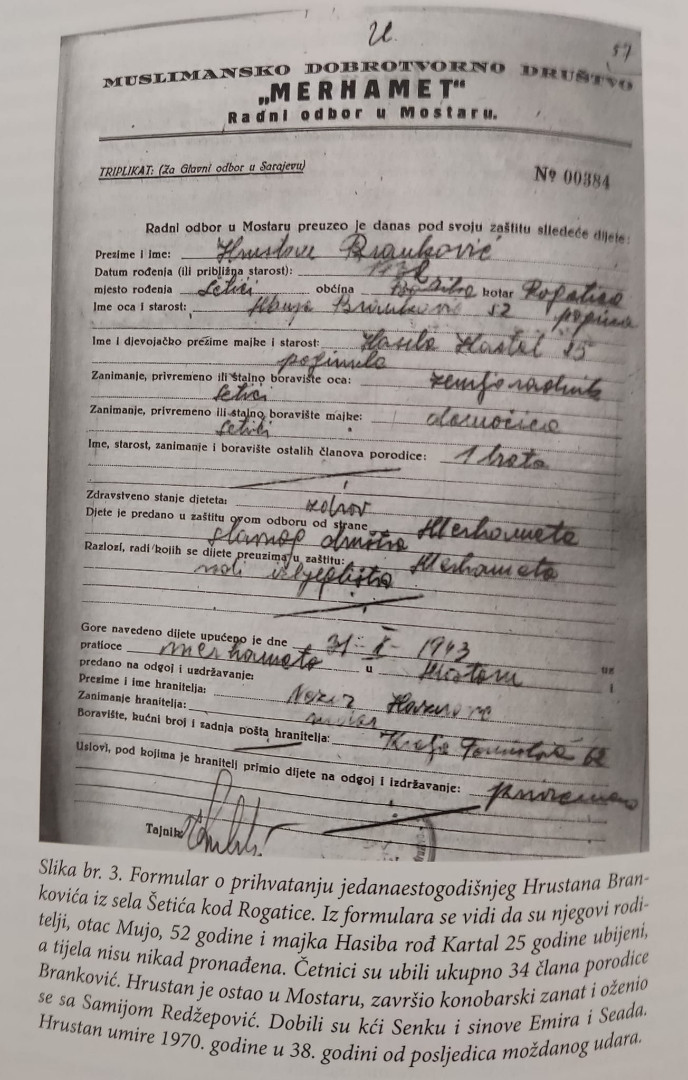 U.
57
MUSLIMANSKO DOBROTVORNO DRUŠTVO
„MERHAMET"
Radni odbor u Mostaru.
TRIPLIKAT: (Za Glavni odbor u Sarajevu)
№ 00384
Radni odbor u Mostaru preuzeo je danas pod svoju zaštitu slledeće dijete:
Prezime i ime: Branković
Datum rođenja (ili približna starost):
mjesto rođenja Šetići općina kotar Rogatica
Ime oca i starost: 52 poginuo
Ime i djevojačko prezime majke i starost: Hasiba
poginula
Zanimanje, privremeno ili stalno boravište oca: zemljoradnik
Šetići
Zanimanje, privremeno ili stalno boravište majke: domaćica
Šetići
Ime, starost, zanimanje i boravište ostalih članova porodice: 1 brata
Zdravstveno stanje djeteta: zdrav
Djete je predano u zaštitu ovom odboru od strane Merhameta
Razlozi, radi kojih se dijete preuzima u zaštitu: Merhameta
radi
Gore navedeno dijete upućeno je dne 31-X-1943 uz
pratioce merhameta u Mostaru i
predano na odgoj i uzdržavanje:
Prezime i ime hranitelja:
Zanimanje hranitelja:
Boravište, kućni broj i zadnja pošta hranitelja: Kralja Tomislava 62
Uslovi, pod kojima je hranitelj primio dijete na odgoj i izdržavanje: privremeno
Tajnik
Slika br. 3. Formular o prihvatanju jedanaestogodišnjeg Hrustana Bran-
kovića iz sela Šetića kod Rogatice. Iz formulara se vidi da su njegovi rodi-
telji, otac Mujo, 52 godine i majka Hasiba rođ Kartal 25 godine ubijeni,
a tijela nisu nikad pronađena. Četnici su ubili ukupno 34 člana porodice
Branković. Hrustan je ostao u Mostaru, završio konobarski zanat i oženio
se sa Samijom Redžepović. Dobili su kći Senku i sinove Emira i Seada.
Hrustan umire 1970. godine u 38. godini od posljedica moždanog udara.